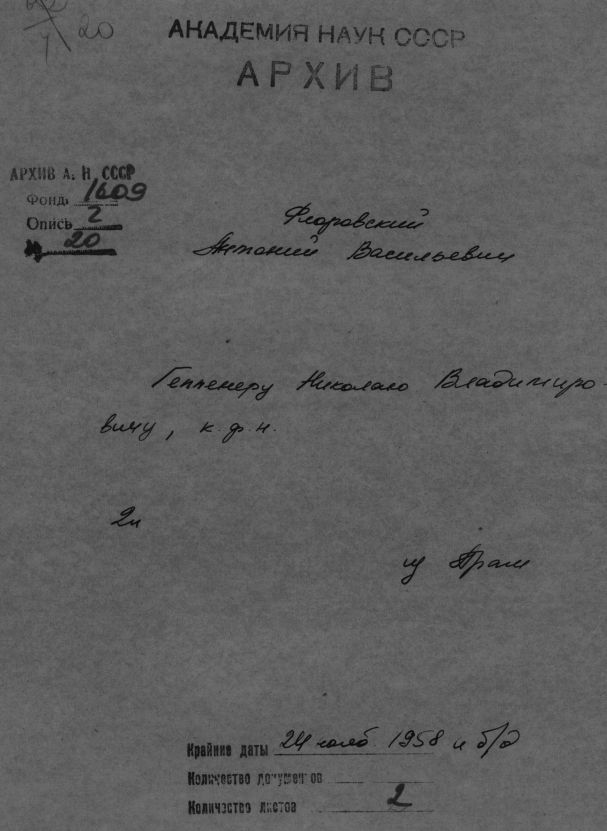 20
АКАДЕМИЯ НАУК СССР
АРХИВ
АРХИВ А. Н. СССР
Фонд 1609
Опись 2
№ 20
Флоровский
Антоний Васильевич
Геппенеру Николаю Владимиро-
вичу, к.ф.н.
2п
из Праги
Крайние даты 24 нояб. 1958 и б/д
Количество документов
Количество листов 2